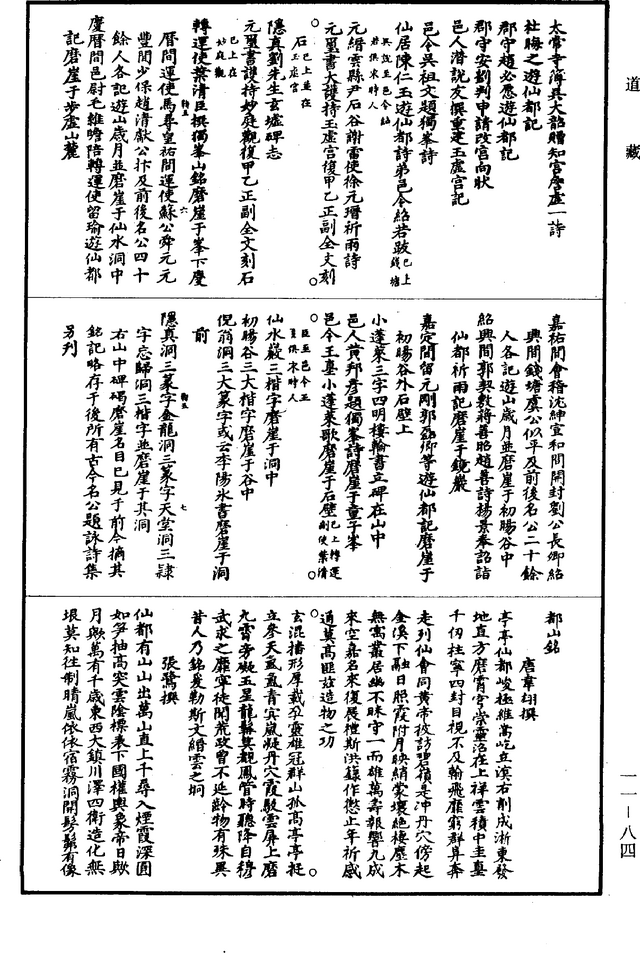 道藏
太常寺簿吳大韶贈知宮詹虛一詩
杜晦之遊仙都記
郡守趙必愿遊仙都記
郡守安劉判申請改宮向狀
邑人潛說友撰重建玉虛宮記
邑令吳祖文題獨峯詩
仙居陳仁玉遊仙都詩弟邑令紹若跋
元縉雲縣尹石谷謝雷使徐元瑨祈雨詩
元璽書大護持玉虛宮復甲乙正副全文刻
石
隱真劉先生玄墟碑志
元璽書護持妙庭觀復甲乙正副全文刻石
轉運使葉清臣撰獨峯山銘磨崖于峯下慶
曆間運使馬尋皇祐間運使蘇公舜元元
豐間少保趙清獻公抃及前後名公四十
餘人各記遊山歲月並磨崖于仙水洞中
慶曆間邑尉毛維瞻陪轉運使留瑜遊仙都
記磨崖于步虛山麓
嘉祐間會稽沈紳宣和間開封劉公長卿紹
興間錢塘虞公似平及前後名公二十餘
人各記遊山歲月並磨崖于初暘谷中
紹興間郭契敷蔣善昭趙善詩楊景奉詔詣
仙都祈雨記磨崖于鏡巖
嘉定間留元剛郭磊卿等遊仙都記磨崖于
初暘谷外石壁上
小蓬萊三字四明樓鑰書立碑在山中
邑人黃邦彥題獨峯詩磨崖于童子峯
邑令王臺小蓬萊歌磨崖于石壁
仙水巖三楷字磨崖于洞中
初暘谷三大楷字磨崖于谷中
倪翁洞三大篆字或云李陽冰書磨崖于洞
前
隱真洞三篆字金龍洞三篆字天堂洞三隸
字忘歸洞三楷字並磨崖于其洞
右山中碑碣磨崖名目已見于前今摘其
銘記略存于後所有古今名公題詠詩集
另刊
都山銘
唐韋翃撰
亭亭仙都峻極維嵩屹立溟右削成浙東發
地直方磨霄穹崇靈洛在上祥雲積中圭臺
千仞柱寧四封目視不及翰飛靡窮群舁奔
走列仙會同黃帝彼訪碧嶺是沖丹穴傍起
金溪下融日照霞附月映綃蒙壤絶棲塵木
無寓叢居幽不昧守一而雄萬壽報響九成
來空嘉名來復展禮斯洪籙作懲止年祈感
通莫高匪茲造物之功
玄混播形厚載孕靈雄冠群山孤高亭亭挺
立參天氤氳青冥嵐凝丹穴霞駮雲屏上磨
九霄旁礙五星龍髯莫覩鳳管時聽降自穆
武求之靡寧徒聞荒政曾不延齡物有殊異
昔人乃銘爰勒斯文縉雲之坰
張鷺撰
仙都有山山出萬山直上千尋入煙霞深圓
如筍抽高突雲陰標表下國權輿象帝日歟
月歟萬有千歲東西大鎮川澤四衛造化無
垠莫知往制晴嵐依依宿霧洞開髣髴有像
一一—八四